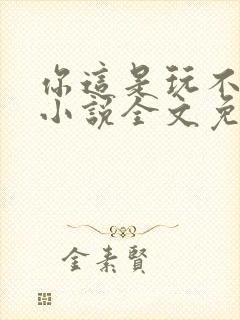 你這是玩不
小說全文免
金素賢